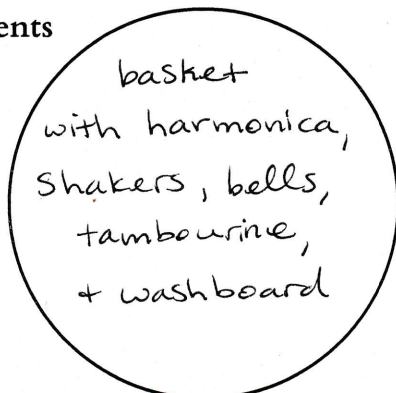 ents
basket
with harmonica,
shakers, bells,
tambourine,
+ washboard